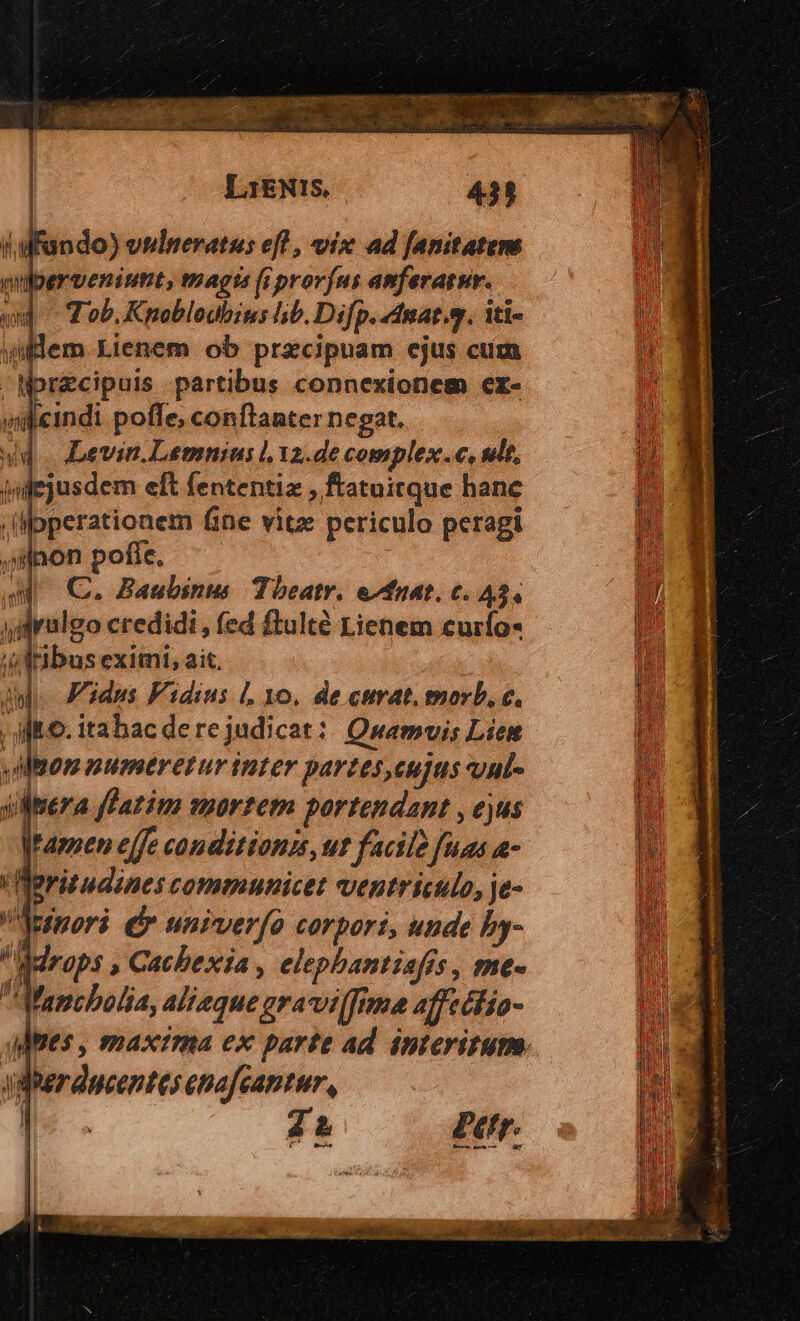 LIENIS. 435
fundo) vulneratus eſt, vix ad ſanitatem
perveniunt, magis ſi prorſus auferatur.
Tob. Knoblochius lib. Diſp. Anat. 9. iti-
dem Lienem ob præcipuam ejus cum
præcipuis partibus connexionem ex-
cindi poſſe, conſtanter negat.
Levin. Lemnius l. 12. de complex. c. ult.
ejusdem eſt ſententiæ, ſtatuitque hanc
operationem ſine vitæ periculo peragi
non poſſe.
C. Bauhinus Theatr. Anat. c. 43.
vulgo credidi, ſed ſtultè Lienem curſo-
ribus eximi, ait.
Vidus Vidius l. 10. de curat. morb. c.
10. ita hac de re judicat: Quamvis Lien
non numeretur inter partes, cujus vul-
nera ſtatim mortem portendant, ejus
tamen eſſe conditionis, ut facilè ſuas a-
ritudines communicet ventriculo, je-
cinori & univerſo corpori, unde hy-
drops, Cachexia, elephantiaſis, me-
lancholia, aliæque graviſſimæ affectio-
nes, maxima ex parte ad interitum
perducentes enaſcantur,
T 2 Petr.